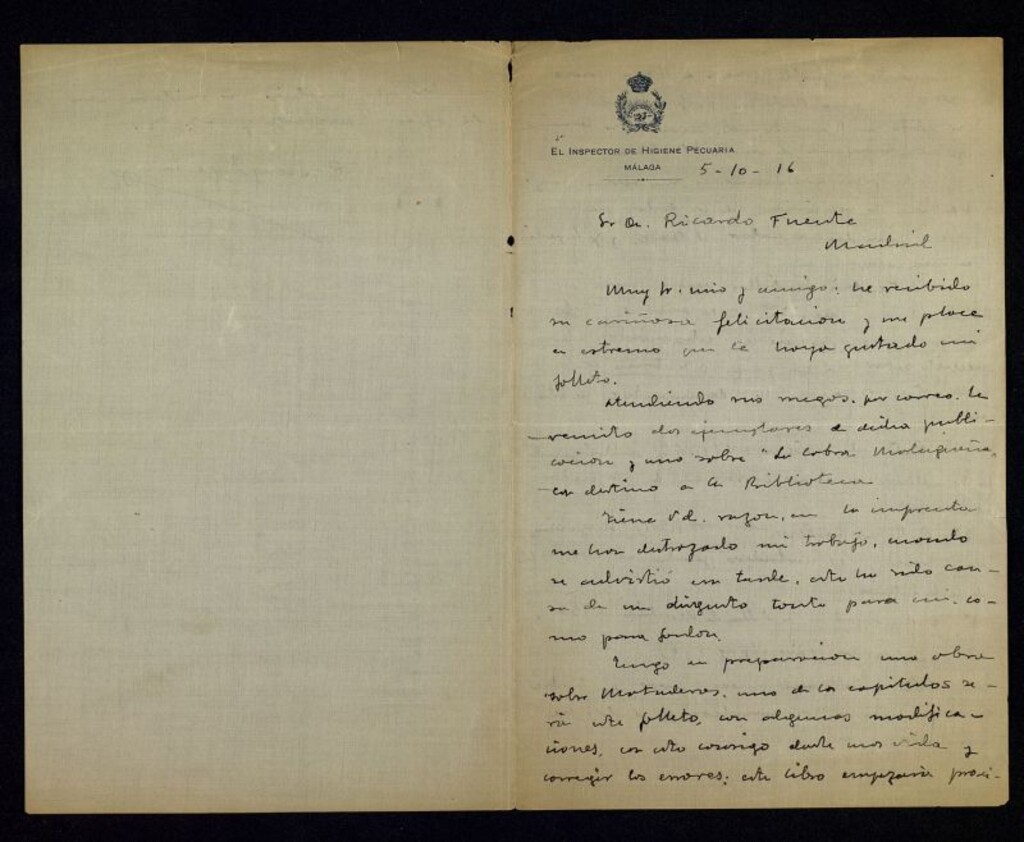 EL INSPECTOR DE HIGIENE PECUARIA
MÁLAGA
5-10-16
Sr. Dn. Ricardo Fuente
Madrid
Muy Sr. mio y amigo: he recibido
su cariñosa felicitacion y me place
en estremo que le haya gustado mi
folleto.
Atendiendo sus ruegos, por correo, le
remito dos ejemplares de dicha publi-
cacion y uno sobre "La cabra Malagueña
con destino a la Biblioteca
Tiene Vd. razon, en la imprenta
me han destrozado mi trabajo, cuando
se advirtió era tarde, esto ha sido cau-
sa de un disgusto tanto para mi, co-
mo para
Tengo en preparacion una obra
sobre Mataderos, uno de los capitulos se-
rá este folleto, con algunas modifica-
ciones, con esto consigo darle mas vida y
corregir los errores; este libro empezaria proxi-